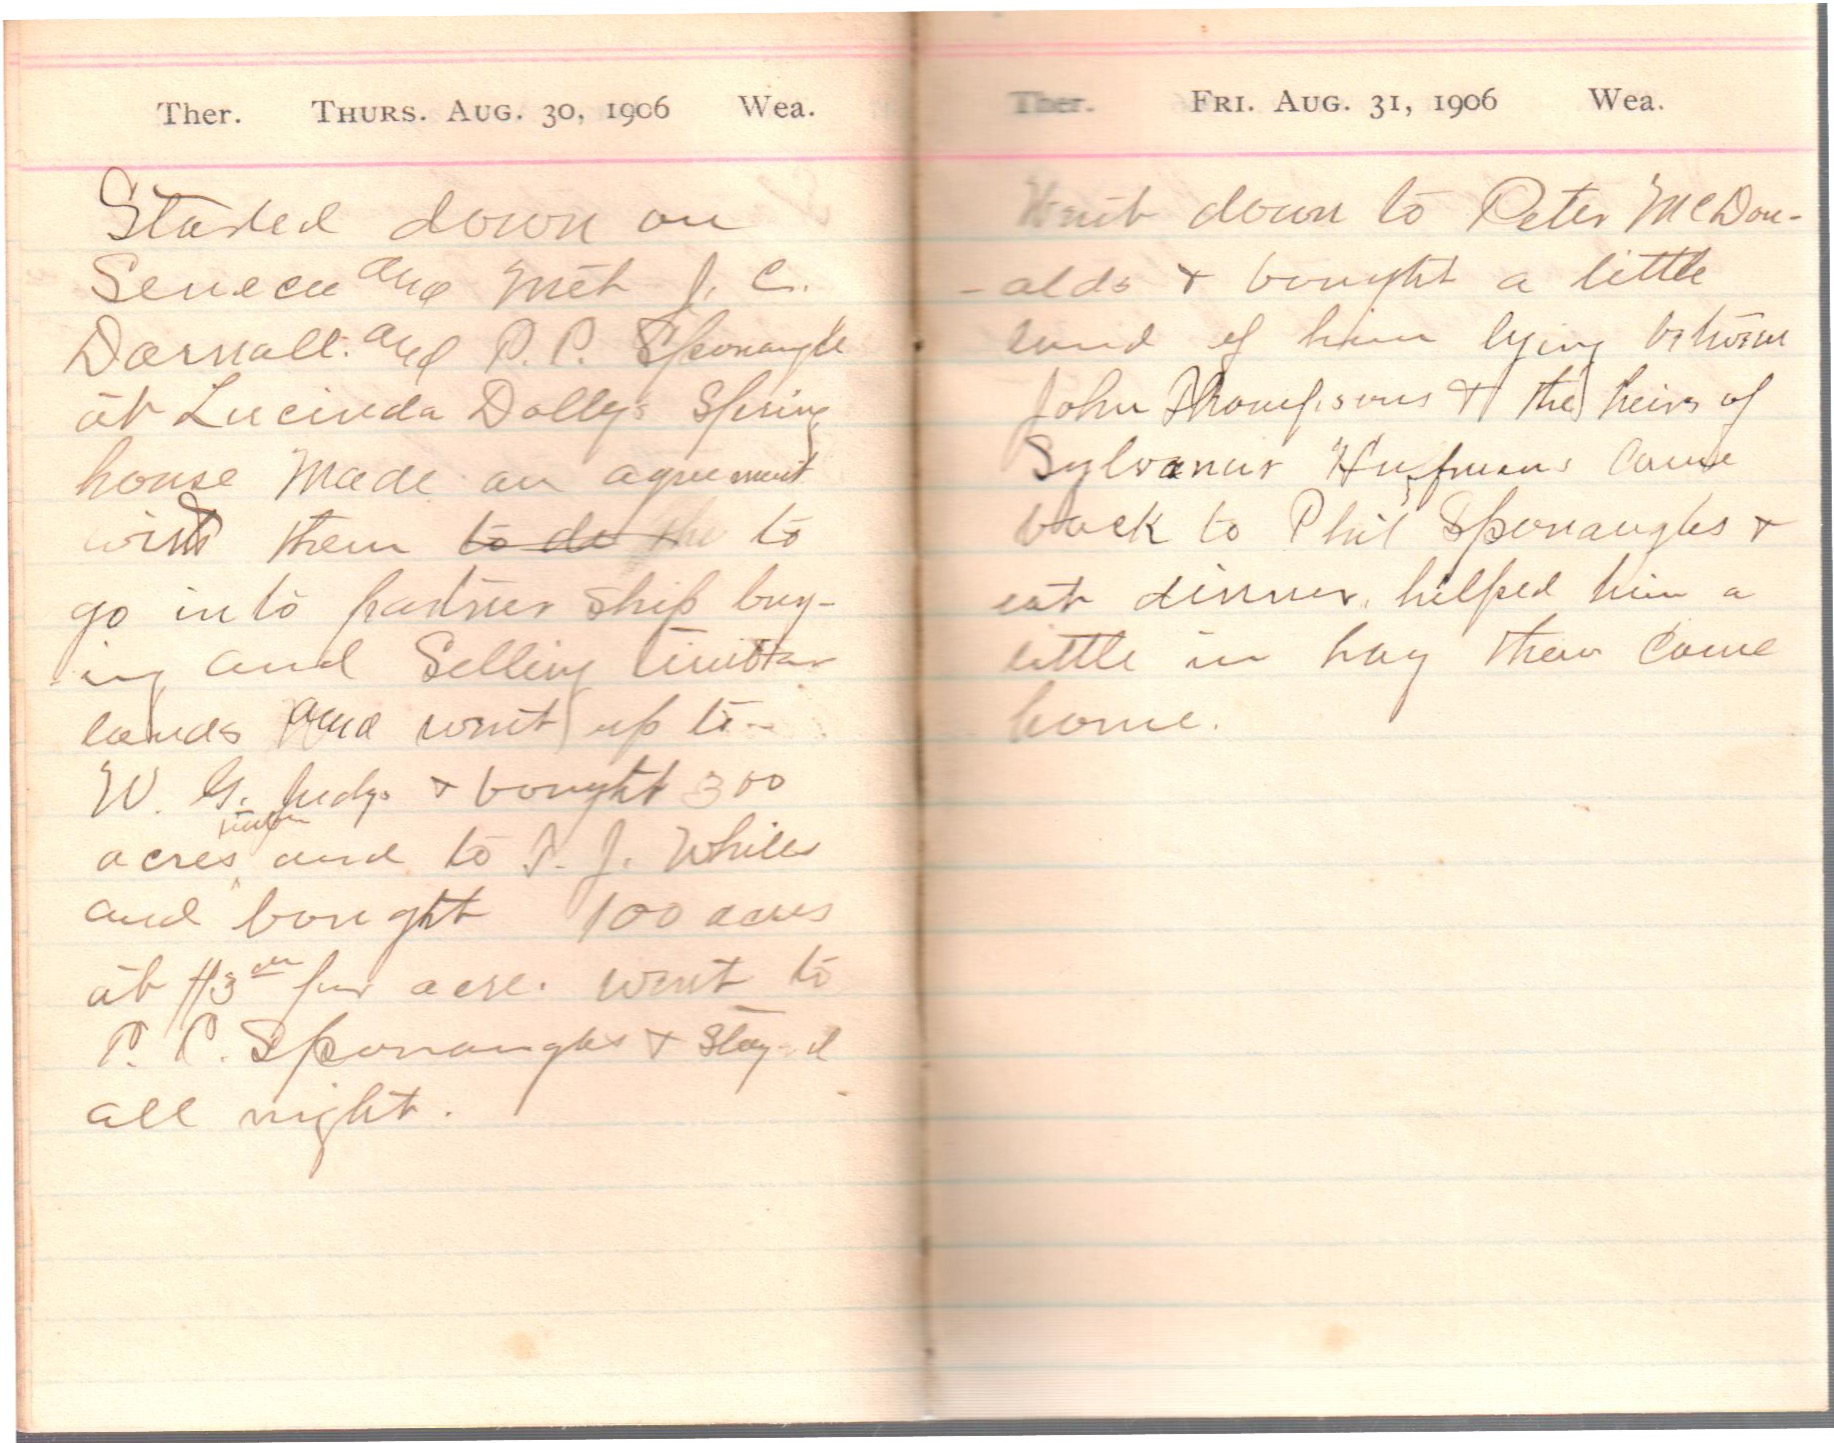 Ther. THURS. AUG. 30, 1906 Wea.
Started down on
Seneca and met J. C.
Darnall. and P. P. Sponaugle
at Lucinda Dollys Spring
house Made an agreement
with them to do the to
go into partner ship buy-
ing and Selling timber
lands and went up to
W. G. Judys & bought 300
acres and to J. Whites
and bought 100 acres
at $3 per acre. went to
P. P. Sponaugles & Stayed
all night.
Ther. FRI. AUG. 31, 1906 Wea.
Went down to Peter McDon-
-alds & bought a little
land of him lying between
John Thompsons & the heirs of
Sylvanus Huffmans Came
back to Phil Sponaugles &
eat dinner, helped him a
little in hay then Came
home.